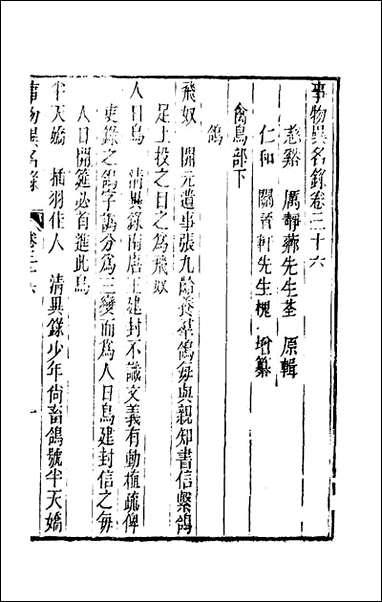 事物異名錄卷三十六
慈谿 厲靜薌先生荃 原輯
仁和 關晉軒先生槐 增纂
禽鳥部下
鴿
飛奴 開元遺事張九齡養羣鴿每與親知書信繫鴿
足上投之日之爲飛奴
人日鳥 清異錄南唐王建封不識文義有動植疏俾
吏錄之鴿字譌分爲三變而爲人日鳥建封信之每
人日開筵必首進此鳥
半天嬌 插羽佳人 清異錄少年尙畜鴿號半天嬌
事物異名錄 卷三十六 一